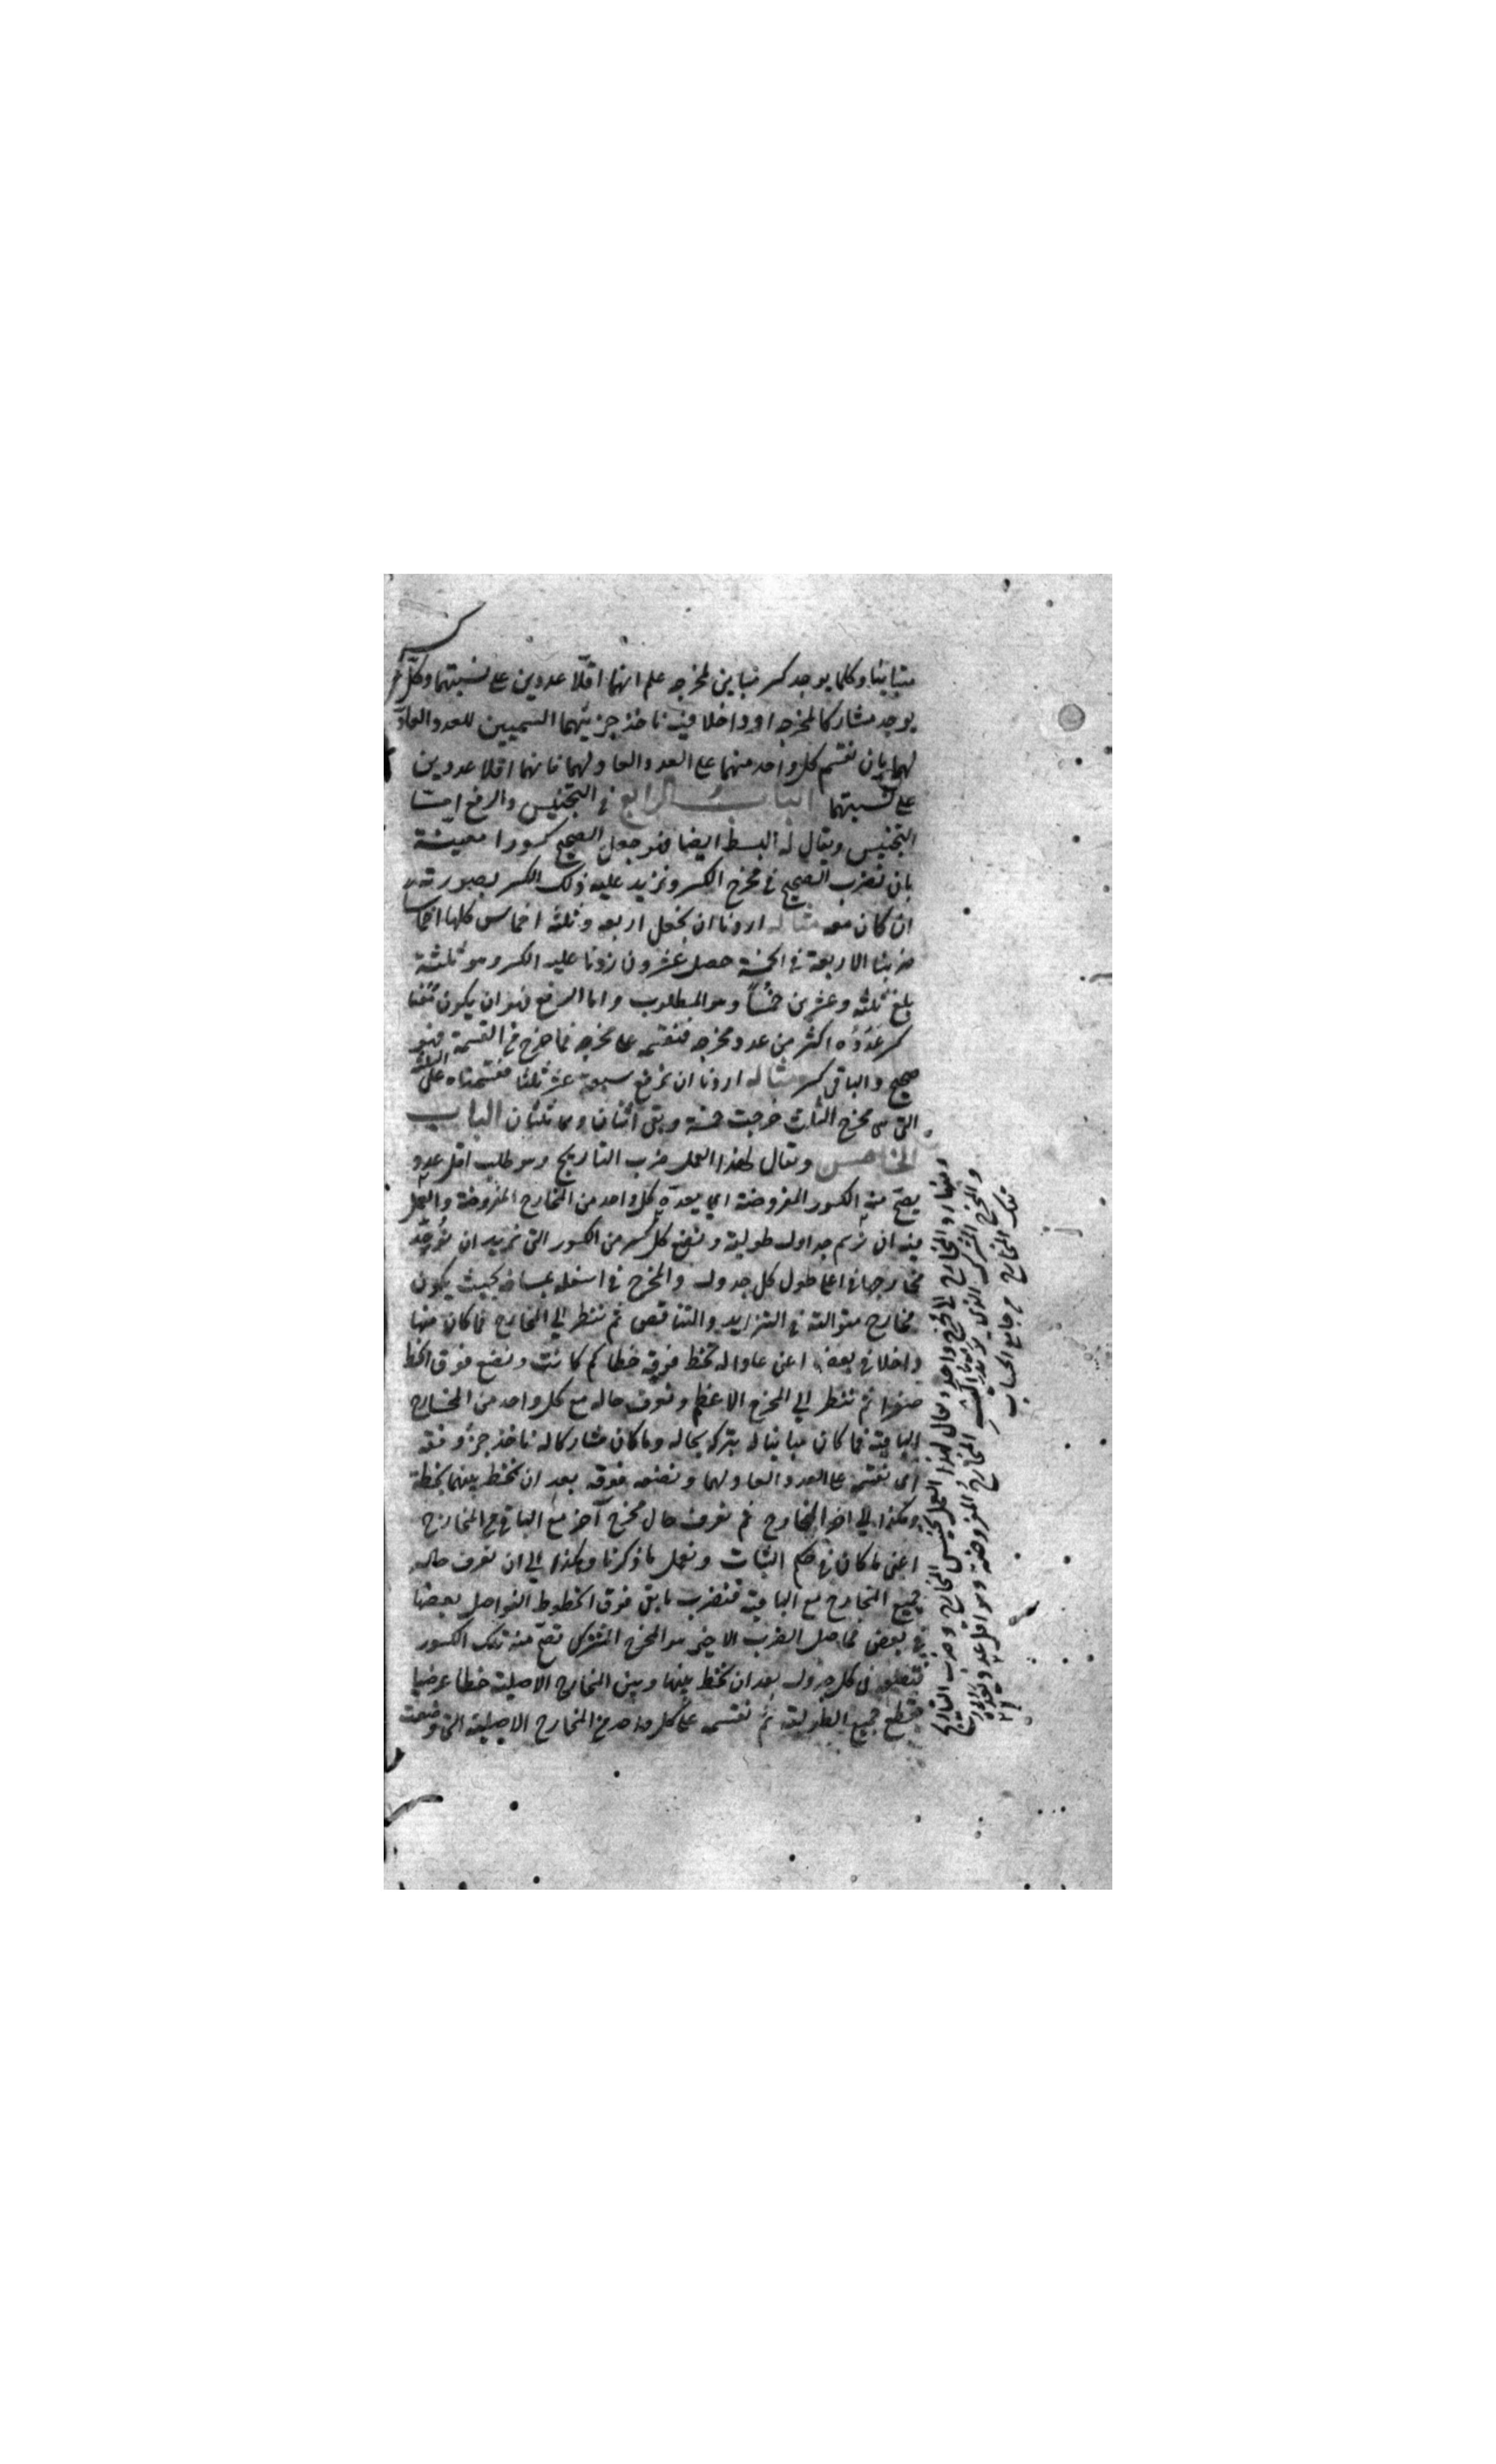 متباينا وكلما يوجد كسر مباين لمخرجه علم انهما اقلا عددين على نسبتهما وكل كسر
يوجد مشاركا لمخرجه او داخلا فيه ناخذ جزئيهما السميين للعدد العادّ
لهما بان نقسم كل واحد منهما على العدد العاد لهما فانهما اقلا عددين
على نسبتهما الباب الرابع في التجنيس والرفع امّا
التجنيس ويقال له البسط ايضا فهو جعل الصحيح كسورا معينة
بان نضرب الصحيح في مخرج الكسر ونزيد عليه ذلك الكسر بصورته
ان كان معه مثاله اردنا ان نجعل اربعه وثلثه اخماس كلها اخماسا
ضربنا الاربعة في الخمسة حصل عشرون زدنا عليه الكسر وهو ثلثة
بلغ ثلثه وعشرين خمسًا وهو المطلوب واما الرفع فهو ان يكون معنا
كسر عَدَدُه اكثر من عدد مخرجه فنقسمه على مخرجه فما خرج من القسمة فهو
صحيح والباقى كسر مثاله اردنا ان نرفع سبعة عشر ثلثا فقسمناه على الثلثة
التى هى مخرج الثلث خرجت خمسة وبقى اثنان وهما ثلثان الباب
الخامس ويقال لهذا العمل ضرب التاريخ وهو طلب اقل عدد
يصحّ منه الكسور المفروضة اي يعدّه كل واحد من المخارج المفروضة والعمل
فيه ان نرسم جداول طولية ونضع كل كسر من الكسور التى نريد ان نوحّد
مخارجها في اعلا طول كل جدول والمخرج في اسفله بمسافة بحيث يكون
مخارج متوالية في التزايد والتناقص ثم ننظر الي المخارج فما كان منها
داخلا في بعض اعنى عادا له نخط فوقه خطا كم كانت ونضع فوق الخط
صفرا ثم ننظر الي المخرج الاعظم ونعرف حاله مع كل واحد من المخارج
الباقية فما كان مباينا له يترك بحاله وما كان مشاركا له ناخذ جزؤ وفقه
اى نقسمه على العدد العاد لهما ونضعه فوقه بعد ان نخط بينهما بخطة
وهكذا الي اخر المخارج ثم نعرف حال مخرج آخر مع الباقى من المخارج
اعنى ما كان في حكم الثبات ونعمل ما ذكرنا وهكذا الي ان نعرف حاله
جميع المخارج مع الباقية فنضرب ما بقى فوق الخطوط الفواصل بعضها
في بعض فحاصل الضرب الاخير هو المخرج المشترك تصح منه تلك الكسور
فنضعه في كل جدول بعد ان نخط بينها وبين المخارج الاصلية خطا عرضيا
يقطع جميع الطولية ثم نقسمه على كل واحد من المخارج الاصلية التى وضعت
المخارج الى مخرج واحد ويقال لهذا العمل تجنيس المخارج وضرب التاريخ
والمخرج المشترك الذي المخارج المفروضة وهو اقل عدد يعده
تلك المخارج من جامع الحساب